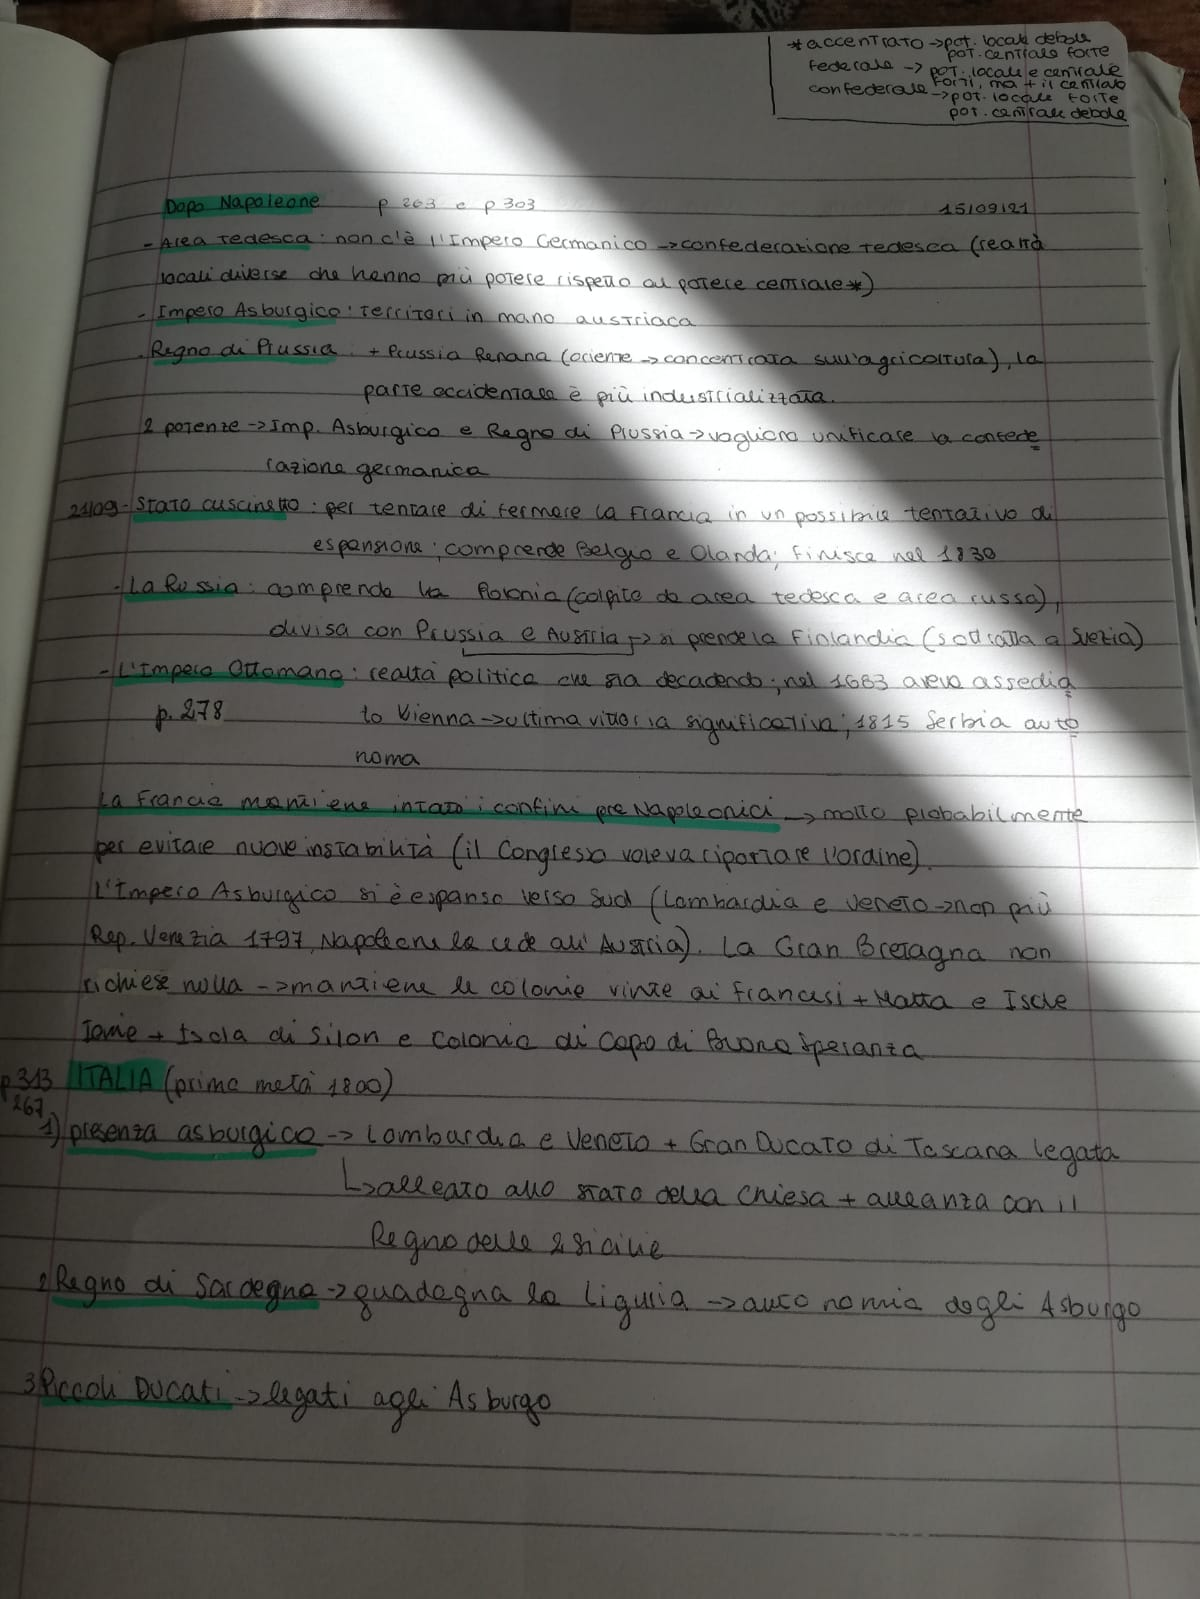 *accentrato -> pot. locale debole
pot. centrale forte
federale -> pot. locale e centrale
forti, ma + il centrale
confederale -> pot. locale forte
pot. centrale debole
Dopo Napoleone p 263 e p 303 15/09/21
- Area tedesca: non c'è l'Impero Germanico -> confederazione tedesca (realtà
locali diverse che hanno più potere rispetto al potere centrale*)
- Impero Asburgico: territori in mano austriaca
- Regno di Prussia: + Prussia Renana (oriente -> concentrata sull'agricoltura), la
parte occidentale è più industrializzata.
2 potenze -> Imp. Asburgico e Regno di Prussia -> vogliono unificare la confede
razione germanica
21/09 - Stato cuscinetto: per tentare di fermare la Francia in un possibile tentativo di
espansione; comprende Belgio e Olanda; finisce nel 1830
- La Russia: comprende la Polonia (colpita da area tedesca e area russa),
divisa con Prussia e Austria -> si prende la Finlandia (sottratta a Svezia)
- L'Impero Ottomano: realtà politica che sta decadendo; nel 1683 aveva assedia
p. 278 to Vienna -> ultima vittoria significativa; 1815 Serbia auto
noma
La Francia mantiene intatti i confini pre Napoleonici -> molto probabilmente
per evitare nuove instabilità (il Congresso voleva riportare l'ordine).
L'Impero Asburgico si è espanso verso Sud (Lombardia e Veneto -> non più
Rep. Venezia 1797, Napoleone la cede all'Austria). La Gran Bretagna non
richiese nulla -> mantiene le colonie vinte ai francesi + Malta e Isole
Ionie + Isola di Silon e Colonia di Capo di Buona Speranza
p 313 ITALIA (prima metà 1800)
267
1) presenza asburgica -> Lombardia e Veneto + Gran Ducato di Toscana legata
↳ alleato allo stato della Chiesa + alleanza con il
Regno delle 2 Sicilie
2 Regno di Sardegna -> guadagna la Liguria -> autonomia dagli Asburgo
3 Piccoli Ducati -> legati agli Asburgo